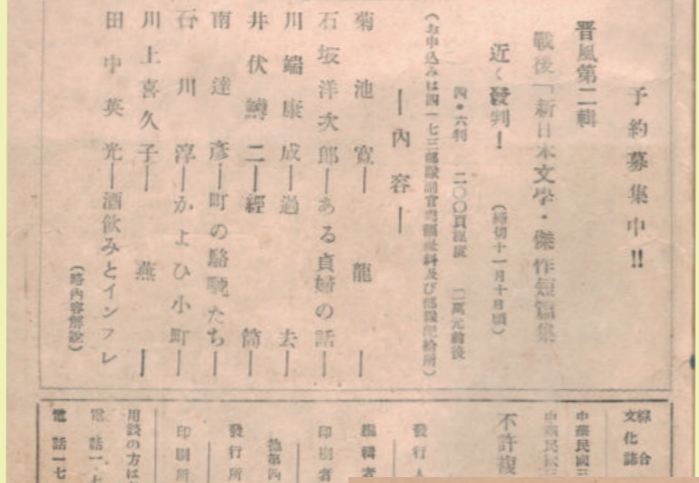 予約募集中!!
晋風第二輯
戰後「新日本文學・傑作短篇集
近く發刊!
(締切十一月十日頃)
四・六判 二〇〇頁程度 二萬元前後
(お申込みは四一七三部隊
―內容―
菊池寬―龍―
石坂洋次郎―ある貞婦の話―
川端康成―過去―
井伏鱒二―經筒―
南達彥―町の騎士たち―
石川淳―かよひ小町―
川上喜久子―燕―
田中英光―酒飲みとインフレ
(略內容解說)
綜合
文化誌
中華民國三
中華民國三
不許複
發行人
編輯者
印刷者
發行所
印刷所
用談の方は
電話一七
電話一七